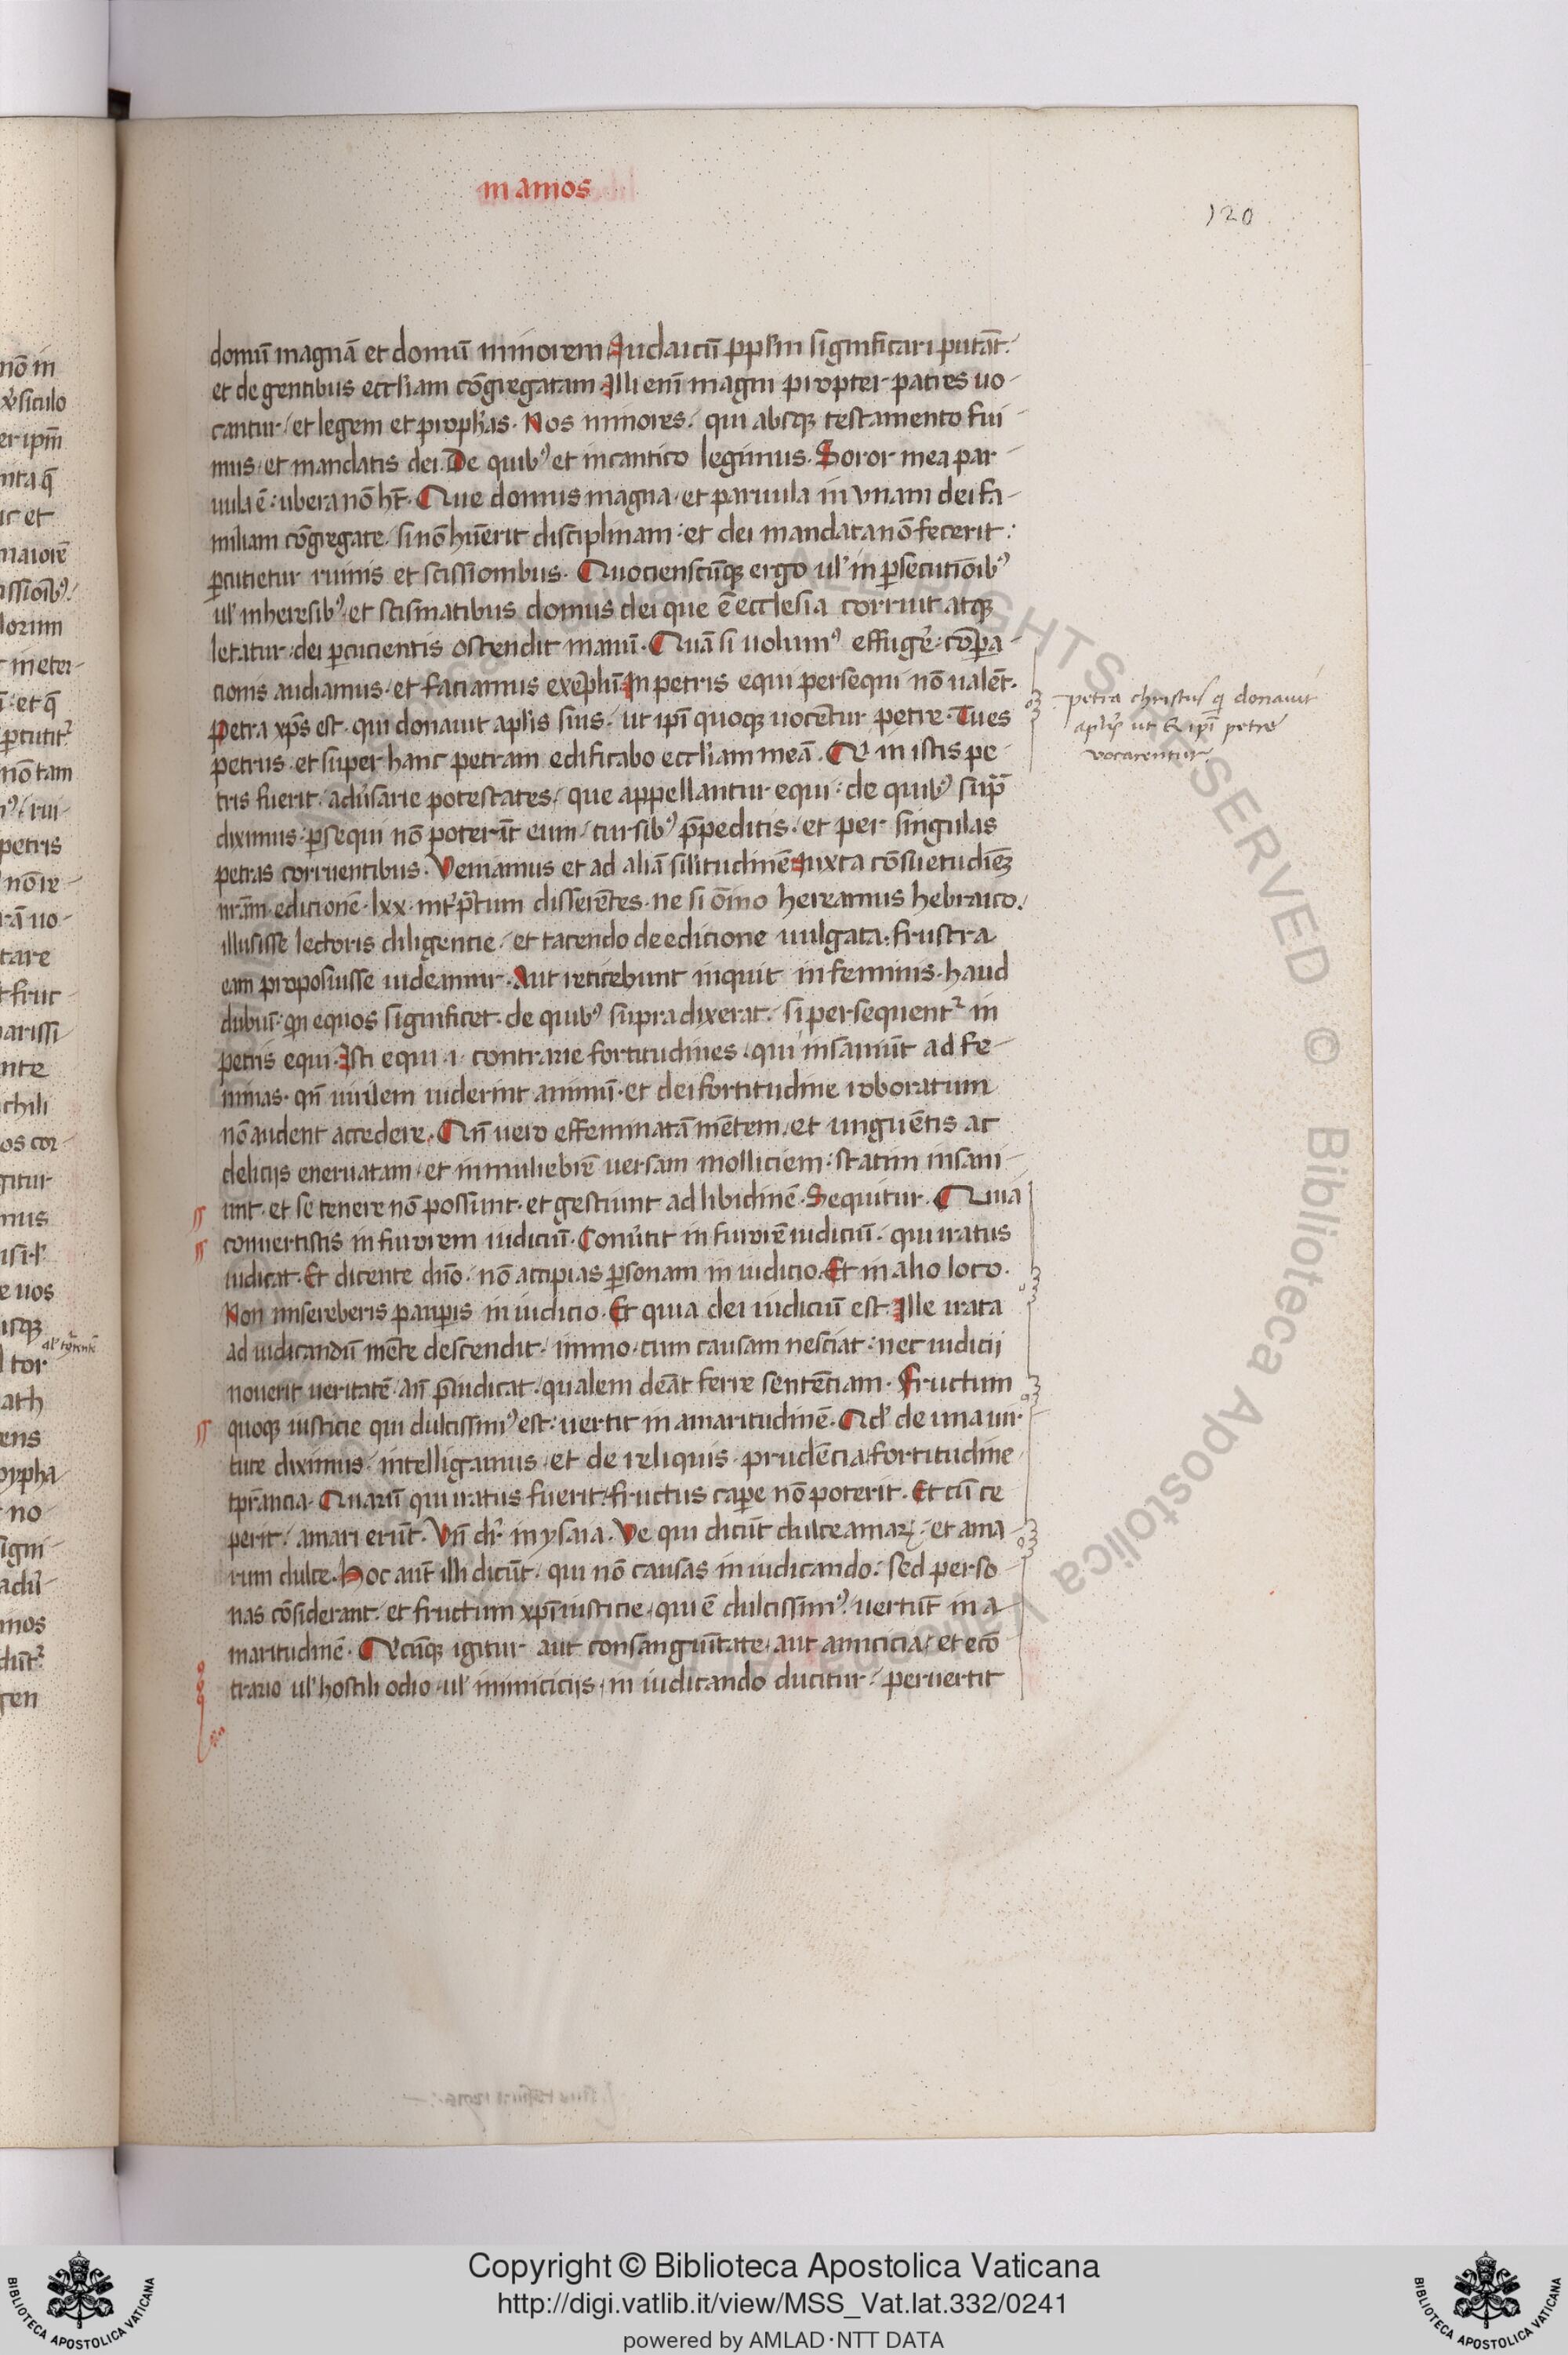 in amos
120
domū magnā et domū minorem Iudaicū ppl̄m significari putāt.
et de gentibus eccl̄iam cōgregatam. Illi enī magni propter patres uo-
cantur / et legem et proph̄as. Nos minores / qui absqꝫ testamento fui-
mus / et mandatis dei. De quibꝰ et in cantico legimus. Soror mea par-
uula ē : ubera nō ht̄. Que domus magna et paruula in vnam dei fa-
miliam cōgregate / si nō hūerit disciplinam / et dei mandata nō fecerit :
ꝑcutietur ruinis et scissionibus. Quocienscūqꝫ ergo ul' in ꝑsecutiōibꝰ
ul' in heresibꝰ / et scismatibus domus dei que ē ecclesia corruit atqꝫ
letatur / dei ꝑcucientis ostendit manū. Quā si uolumꝰ effuge᷑ / cōꝑa-
cionis audiamus / et faciamus exēplū In petris equi persequi nō ualēt.
Petra xp̄s est qui donauit apl̄is suis / ut ip̄i quoqꝫ uocētur petre. Tu es
petrus et super hanc petram edificabo eccl̄iam meā. Qͥ in istis pe-
tris fuerit / adu᷑sarie potestates / que appellantur equi / de quibꝰ sup̄
diximus / ꝑsequi nō poterūt eum / cursibꝰ p̄peditis / et per singulas
petras corruentibus. Veniamus et ad aliā sil̄itudinē Iuxta cōsuetudinē
nr̄am edicionē lxx int᷑p̄tum disserētes / ne si ōīno hereamus hebraico /
illusisse lectoris diligencie / et tacendo de edicione uulgata / frustra
eam proposuisse uideamur. Aut reticebunt inquit in feminis / haud
dubiū / qn̄ equos significet / de quibꝰ supra dixerat / si persequent᷑ in
petris equi. Isti equi .i. contrarie fortitudines / qui insaniūt ad fe-
minas / qn̄ uirilem uiderint animū / et dei fortitudine roboratum
nō audent accedere. Qn̄ uero effeminatā mētem / et unguētis ac
delicijs eneruatam / et in muliebrē uersam molliciem / statim insani-
unt / et se tenere nō possunt / et gestiunt ad libidinē. Sequitur. Quia
conuertistis in furorem iudiciū. Conu᷑tit in furorē iudiciū / qui iratus
iudicat. Et dicente dn̄o / nō accipias ꝑsonam in iudicio. Et in alio loco.
Non misereberis pauꝑis in iudicio. Et quia dei iudiciū est. Ille irata
ad iudicandū mēte descendit / immo / cum causam nesciat / nec iudicii
nouerit ueritatē / an̄ p̄iudicat / qualem debeāt ferre sentētiam. Fructum
quoqꝫ iusticie qui dulcissimꝰ est / uertit in amaritudinē. Qd' de una uir-
tute diximus / intelligamus / et de reliquis prudēcia fortitudine
tp̄rancia. Quarū qui iratus fuerit / fructus caꝑe nō poterit. Et cū ce-
perit / amari erūt. Vn̄ dr̄ in ysaia. Ve qui dicūt dulce amarꝝ / et ama-
rum dulce. Hoc aut̄ illi dicūt / qui nō causas in iudicando / sed perso-
nas cōsiderant / et fructum xp̄i iusticie / qui ē dulcissimꝰ / uertūt in a-
maritudinē. Qͥcūqꝫ igitur aut consanguītate / aut amicicia / et ecō-
trario ul' hostili odio / ul' inimicicijs / in iudicando ducitur / peruertit
petra christus q̄ donauit
apl̄is ut & ip̄i petre
vocarentur
nō in
siculo
er ipm̄
ic et
maiorē
lorum
et q̄
nō tam
petris
nō re-
tare
fruc-
arissi-
nte
chili
os cor-
gitur
mus
e uos
tor
ath
ens
no-
igni-
mos
Copyright © Biblioteca Apostolica Vaticana
http://digi.vatlib.it/view/MSS_Vat.lat.332/0241
powered by AMLAD·NTT DATA
BIBLIOTECA APOSTOLICA VATICANA
BIBLIOTECA APOSTOLICA VATICANA